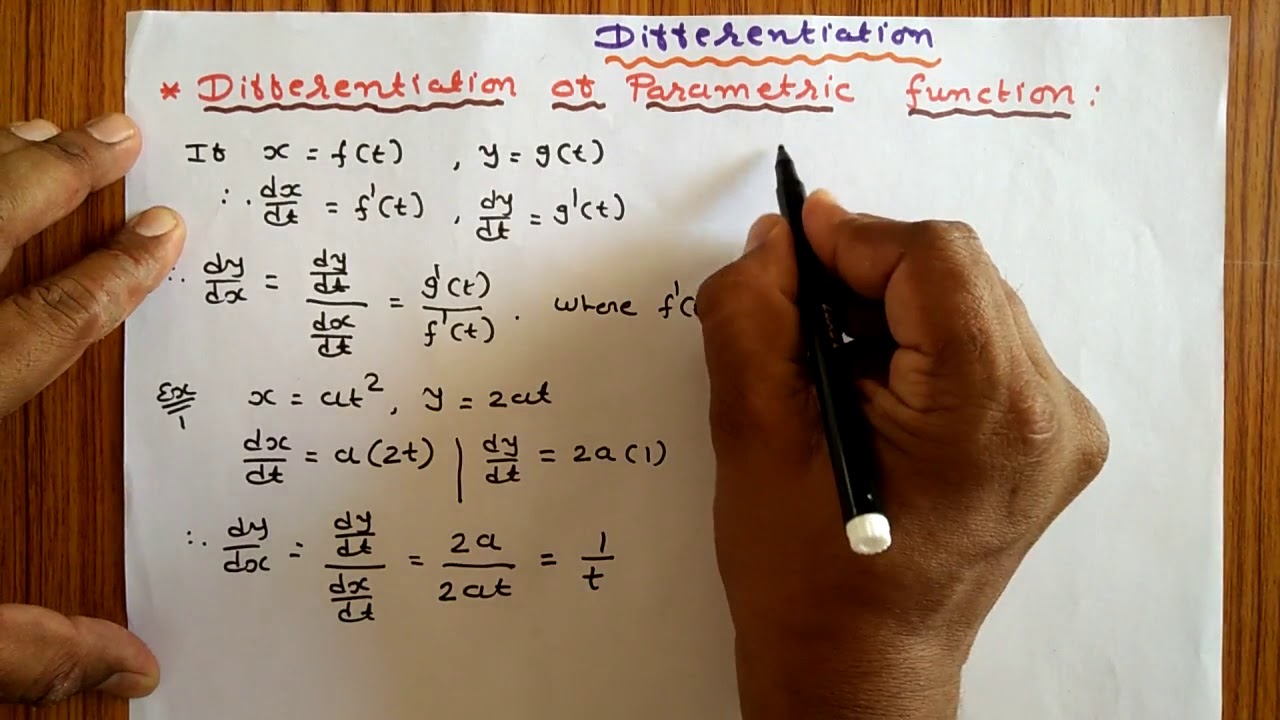 Differentiation
* Differentiation of Parametric function :
If x = f(t) , y = g(t)
∴ dx/dt = f'(t) , dy/dt = g'(t)
∴ dy/dx = (dy/dt)/(dx/dt) = g'(t)/f'(t) . where
Ex 1 x = at², y = 2at
dx/dt = a(2t) | dy/dt = 2a(1)
∴ dy/dx = (dy/dt)/(dx/dt) = 2a/2at = 1/t